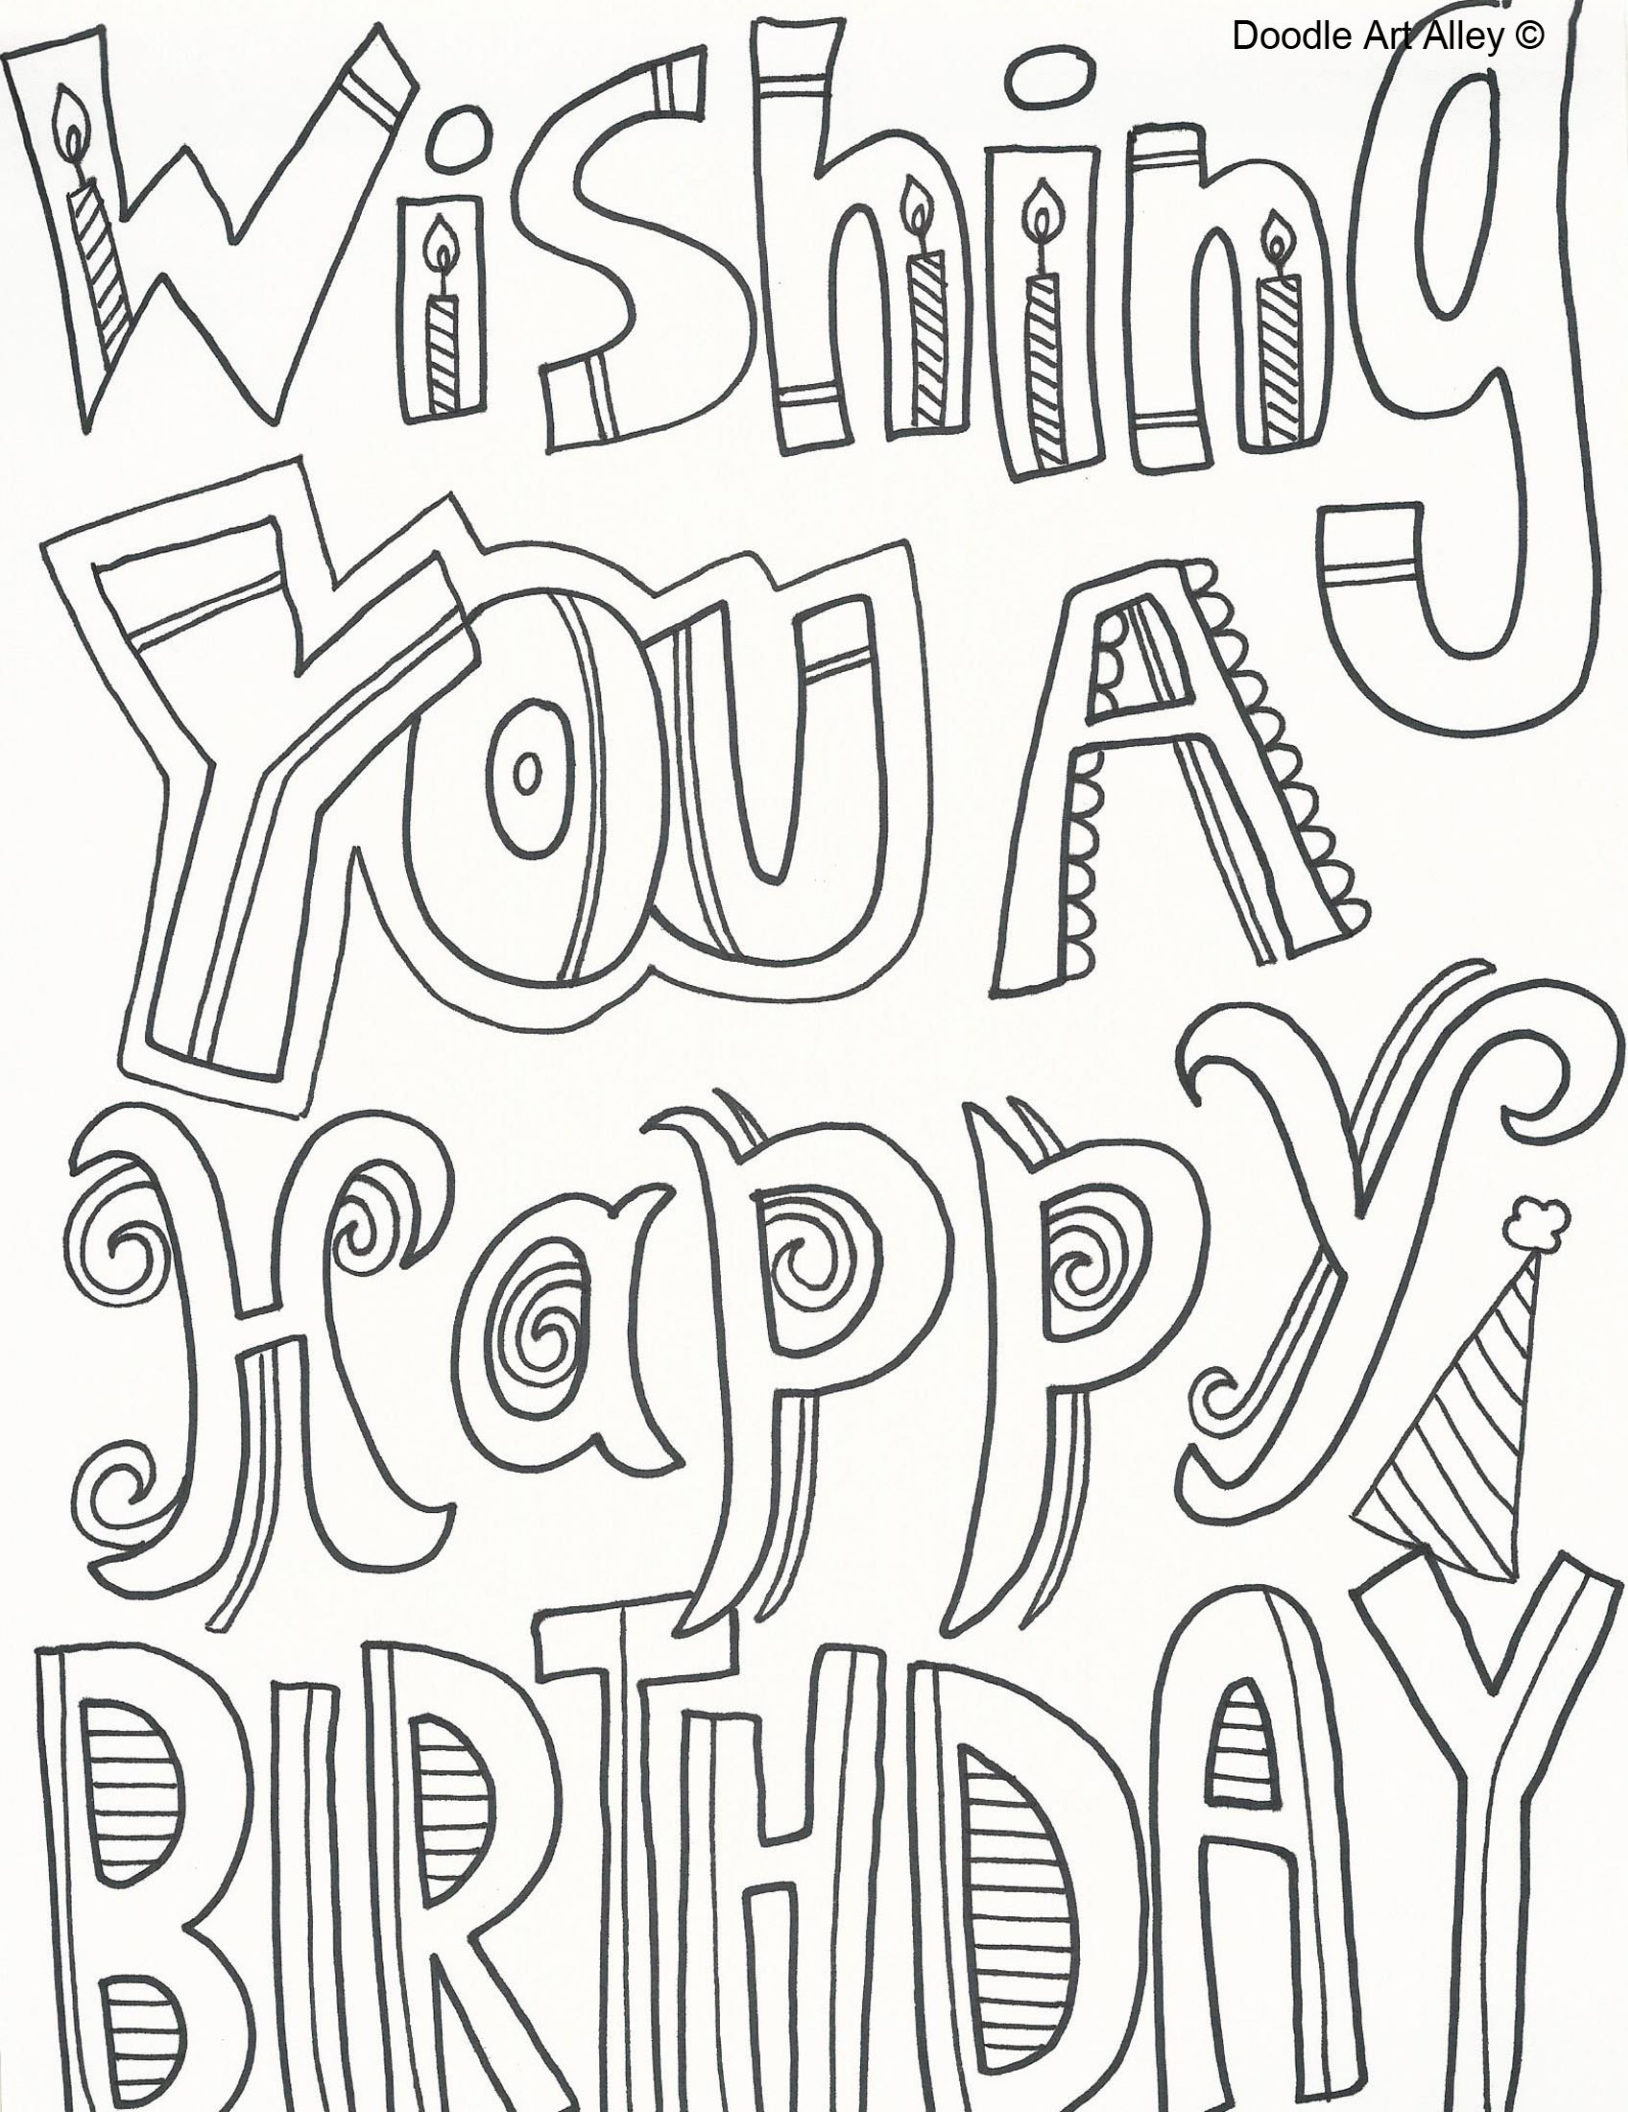 Doodle Art Alley ©
Wishing
YOU A
Happy
BIRTHDAY